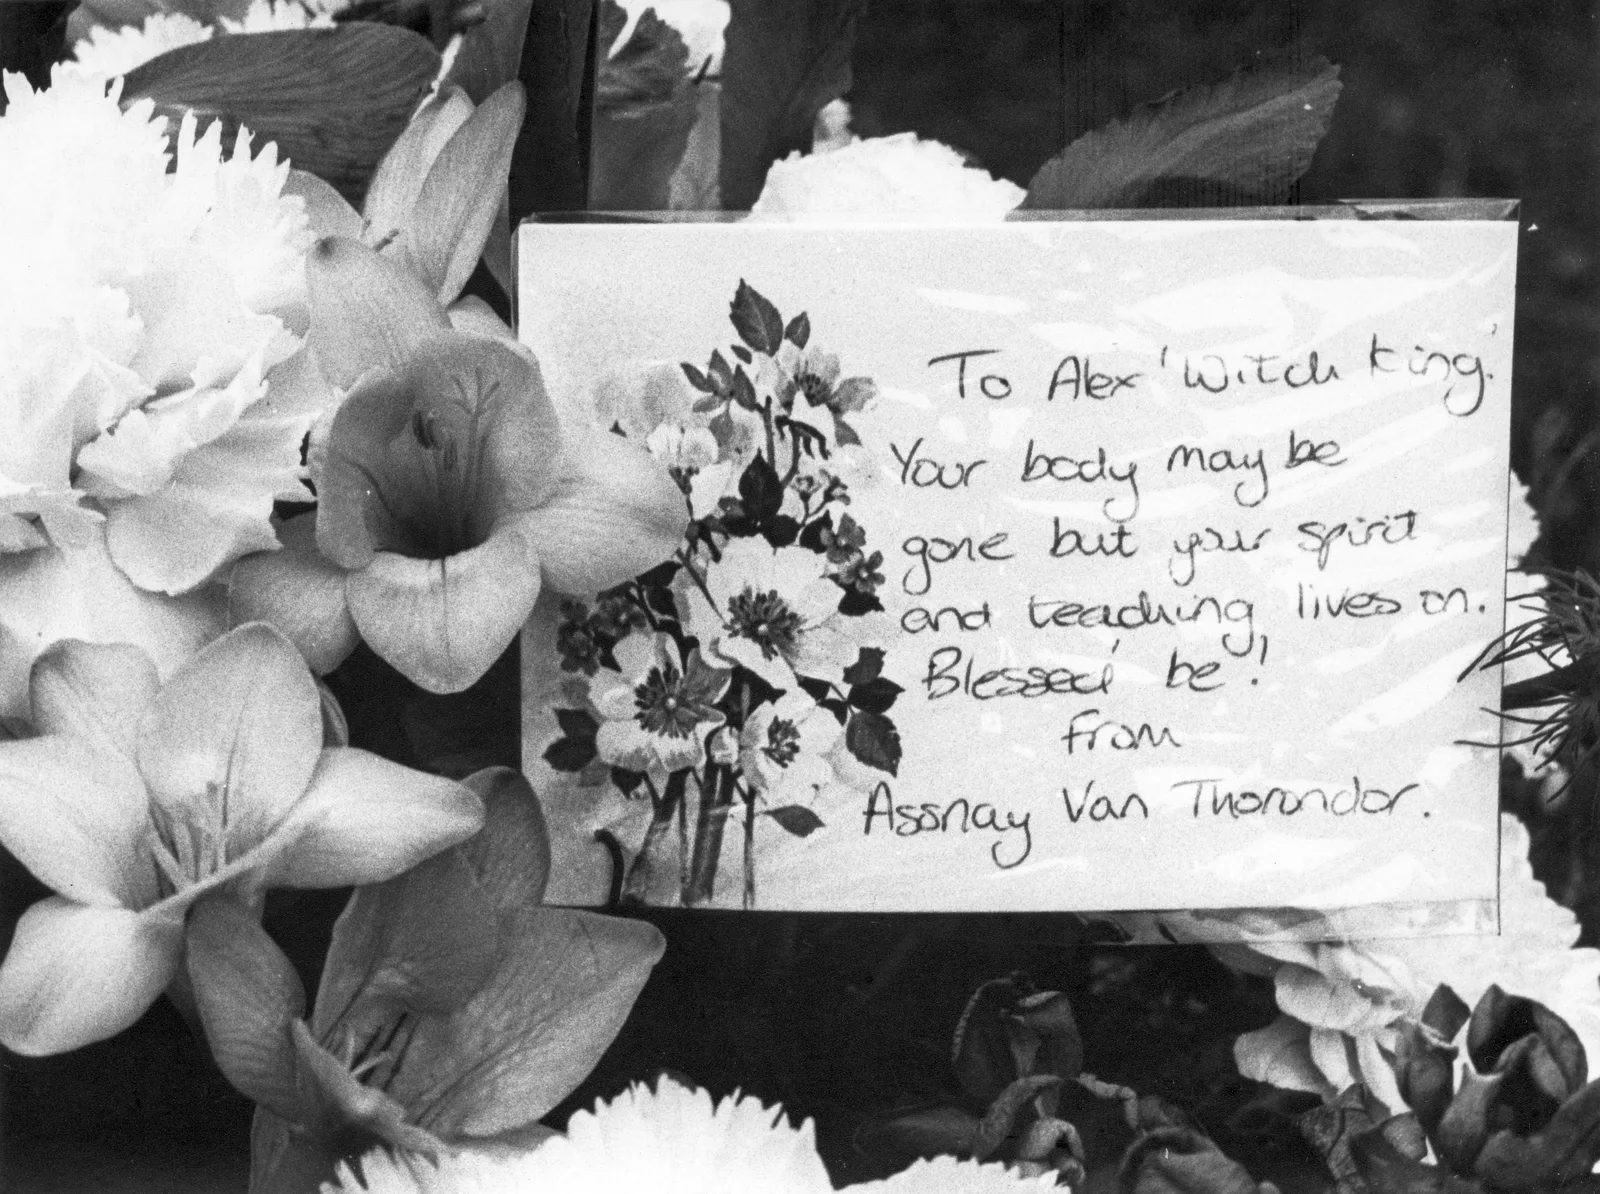 To Alex 'Witch King'
Your body may be
gone but your spirit
and teaching lives on.
Blessed be!
from
Assnay Van Thorondor.